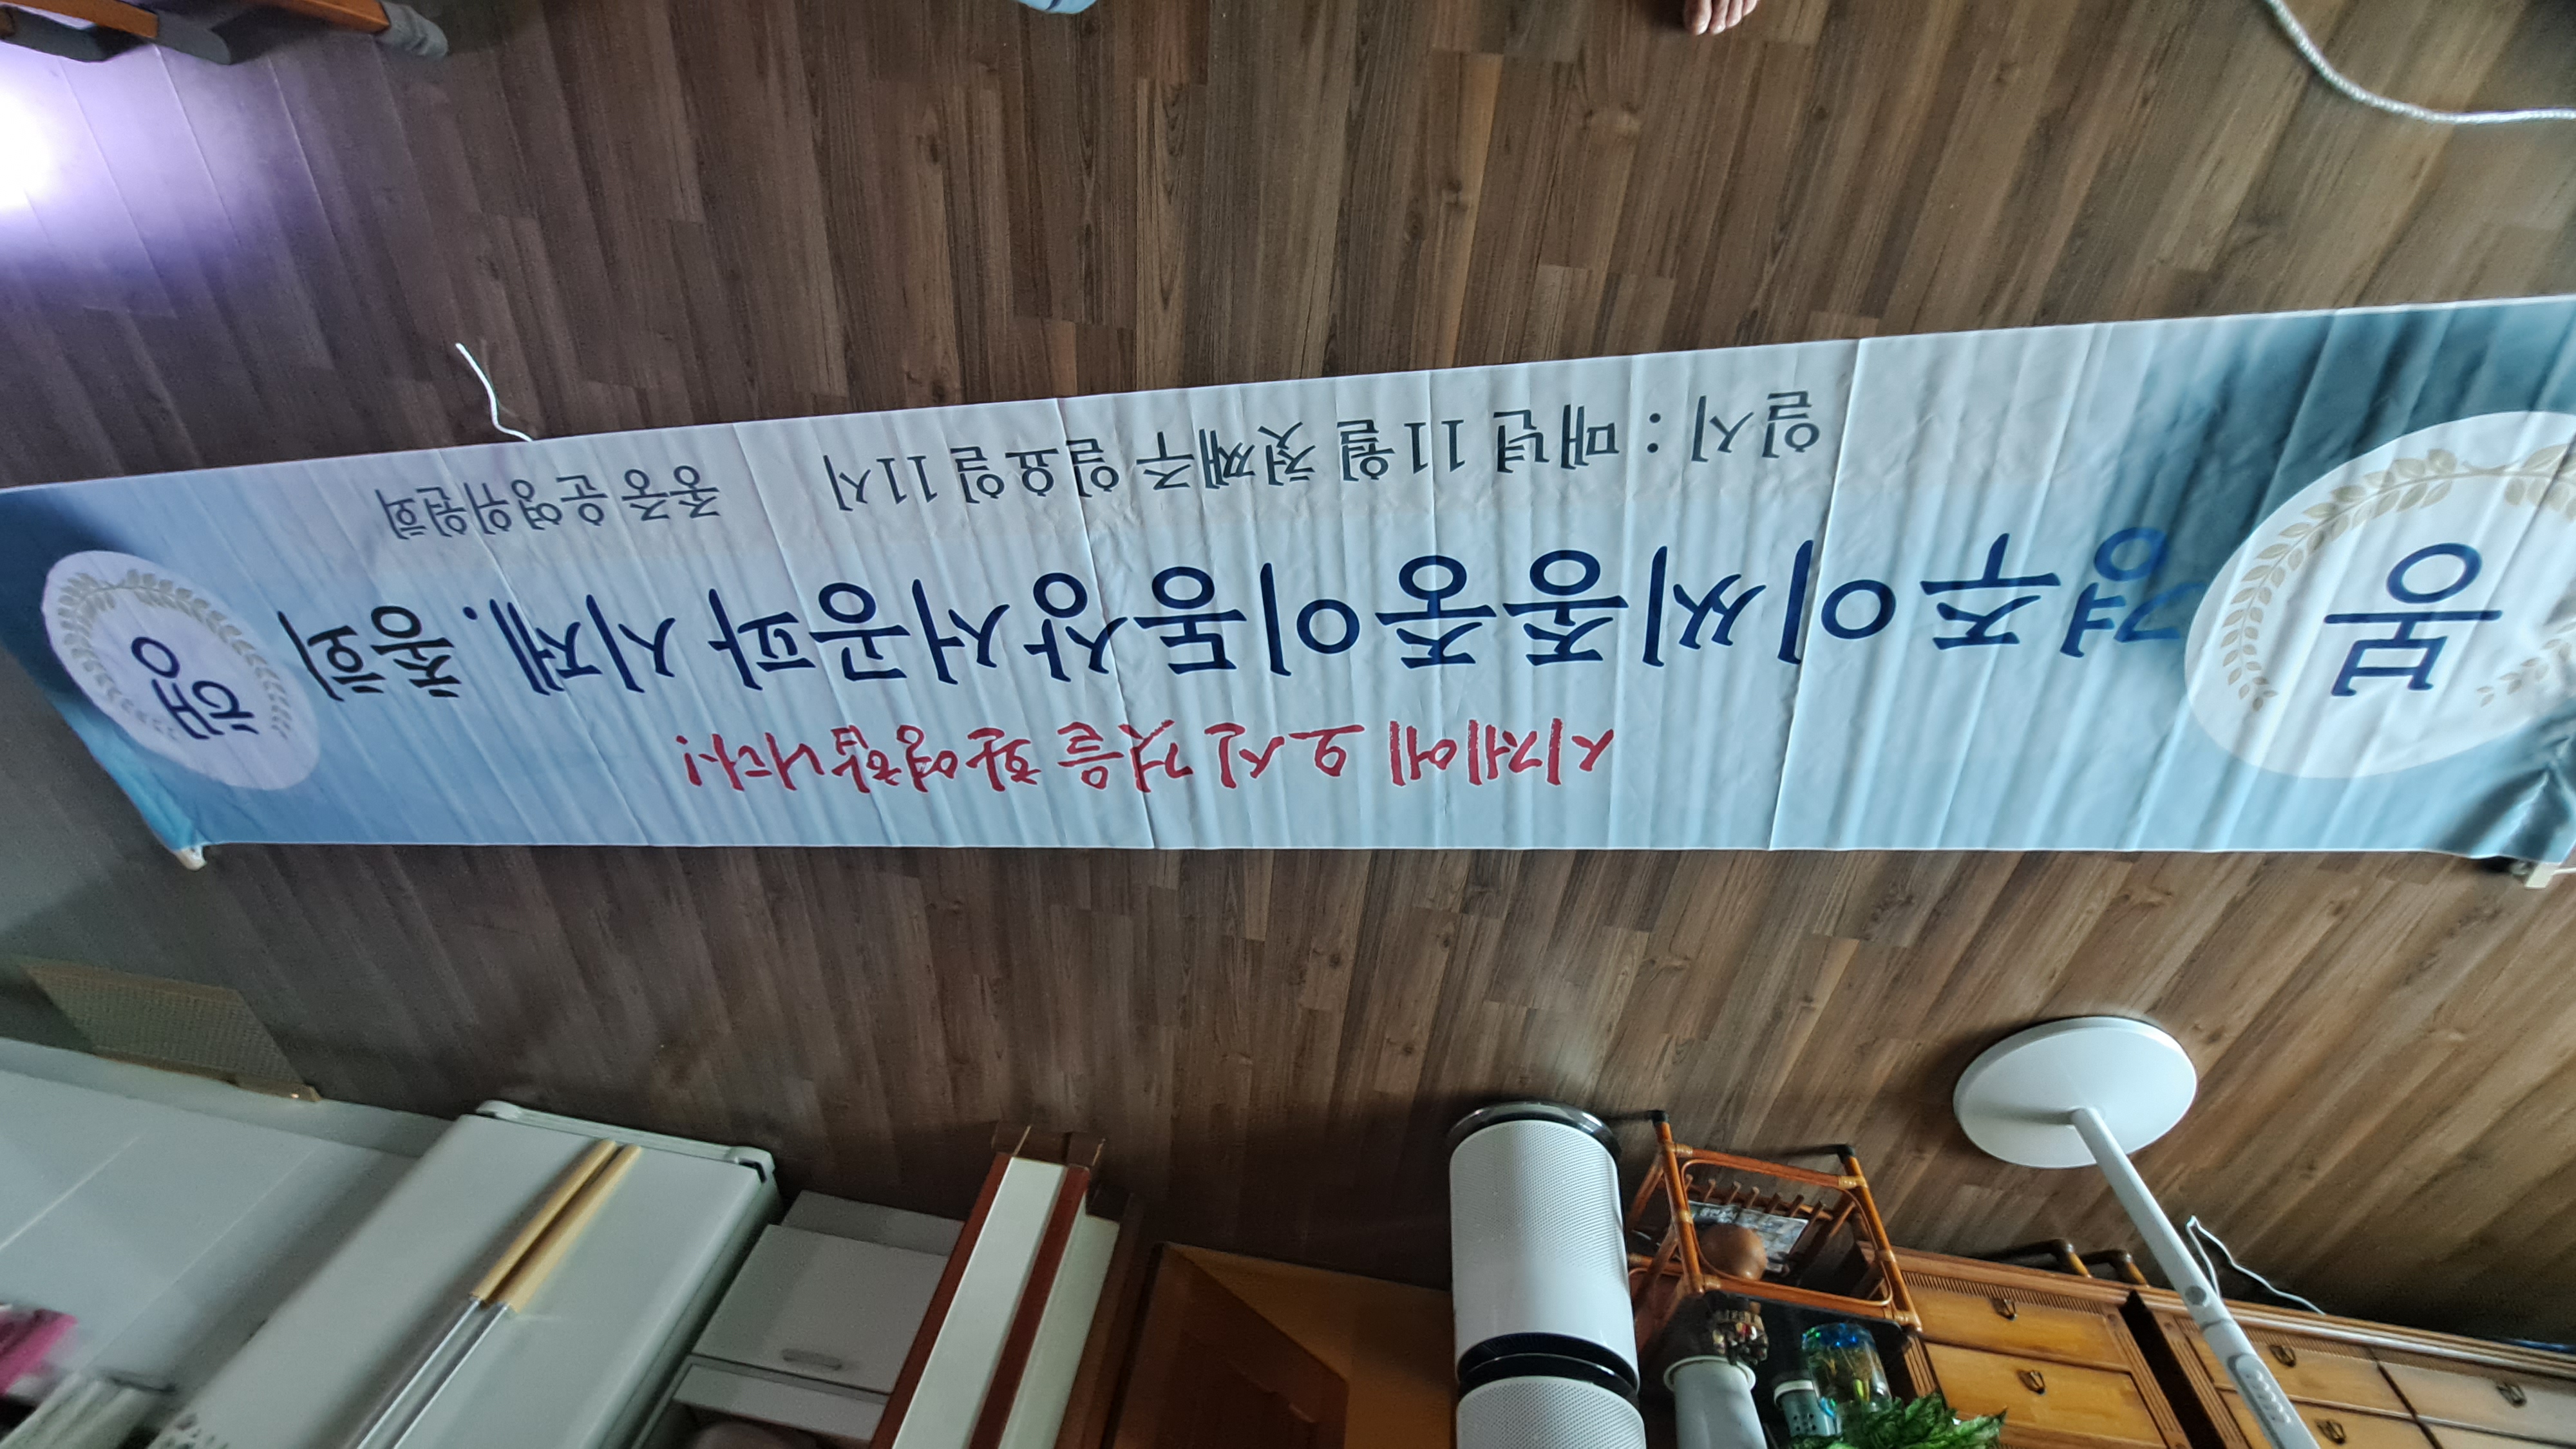 시제에 오신 것을 환영합니다!
봉 경주이씨종중이동상서공파 시제. 총회 행
일시 : 매년 11월 첫째주 일요일 11시 종중 운영위원회